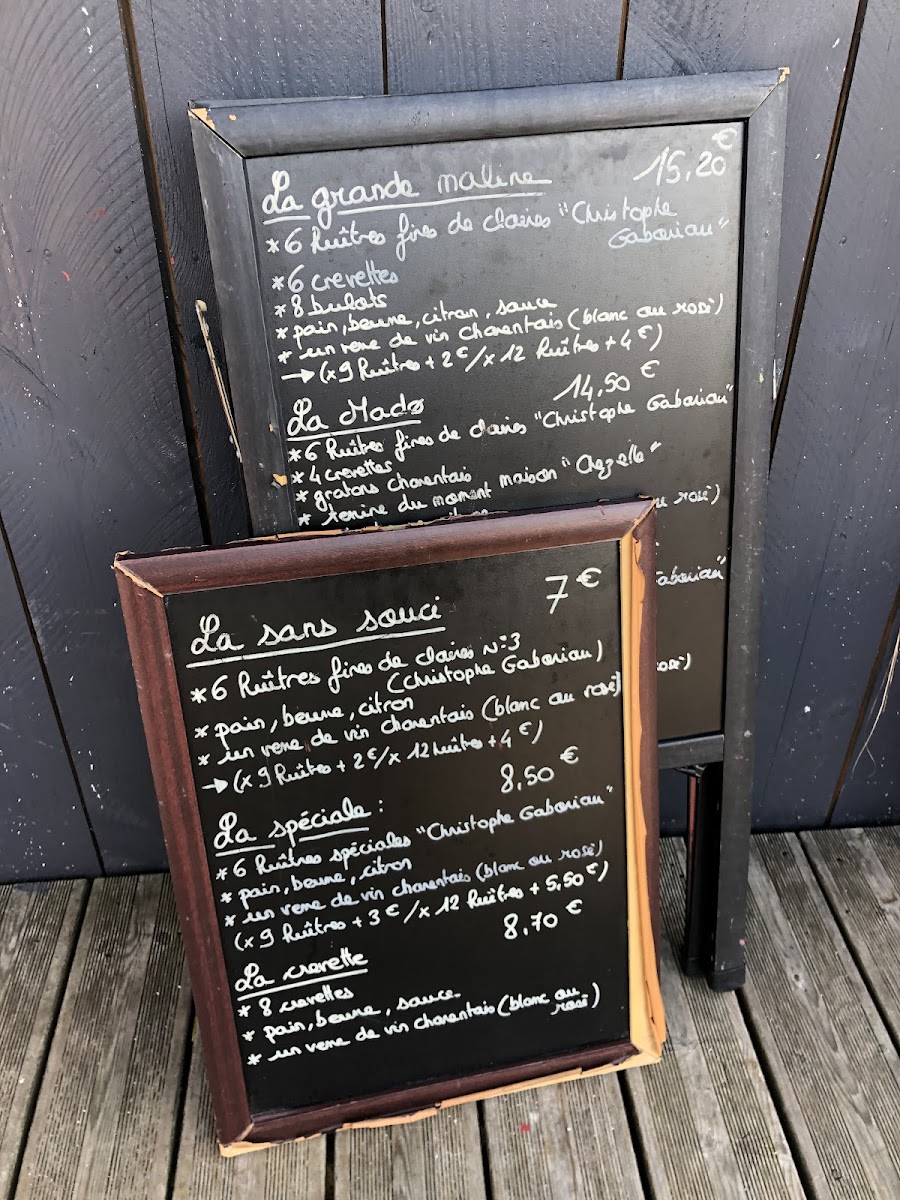 La grande maline 15,20€
* 6 huîtres fines de claires "Christophe
Gaboriau"
* 6 crevettes
* 8 bulots
* pain, beurre, citron, sauce
* un verre de vin charentais (blanc ou rosé)
→ (x 9 huîtres + 2€ / x 12 huîtres + 4€)
La Mado 14,50 €
* 6 huîtres fines de claires "Christophe Gaboriau"
* 4 crevettes
* gratons charentais
* terrine du moment maison "Chezelle"
ou rosé)
Gaboriau"
rosé)
La sans souci 7€
* 6 huîtres fines de claires N°3
(Christophe Gaboriau)
* pain, beurre, citron
* un verre de vin charentais (blanc ou rosé)
→ (x 9 huîtres + 2€ / x 12 huîtres + 4€)
La spéciale : 8,50 €
* 6 huîtres spéciales "Christophe Gaboriau"
* pain, beurre, citron
* un verre de vin charentais (blanc ou rosé)
(x 9 huîtres + 3€ / x 12 huîtres + 5,50€)
La crevette 8,70 €
* 8 crevettes
* pain, beurre, sauce
* un verre de vin charentais (blanc ou
rosé)